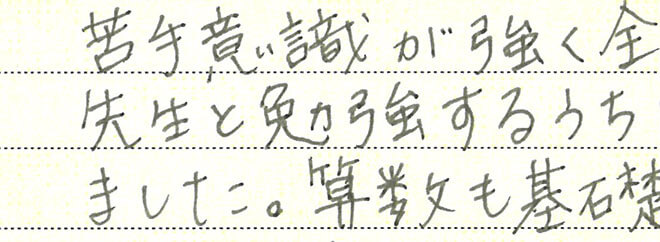 苦手意識が強く全
先生と勉強するうち
ました。算数も基礎